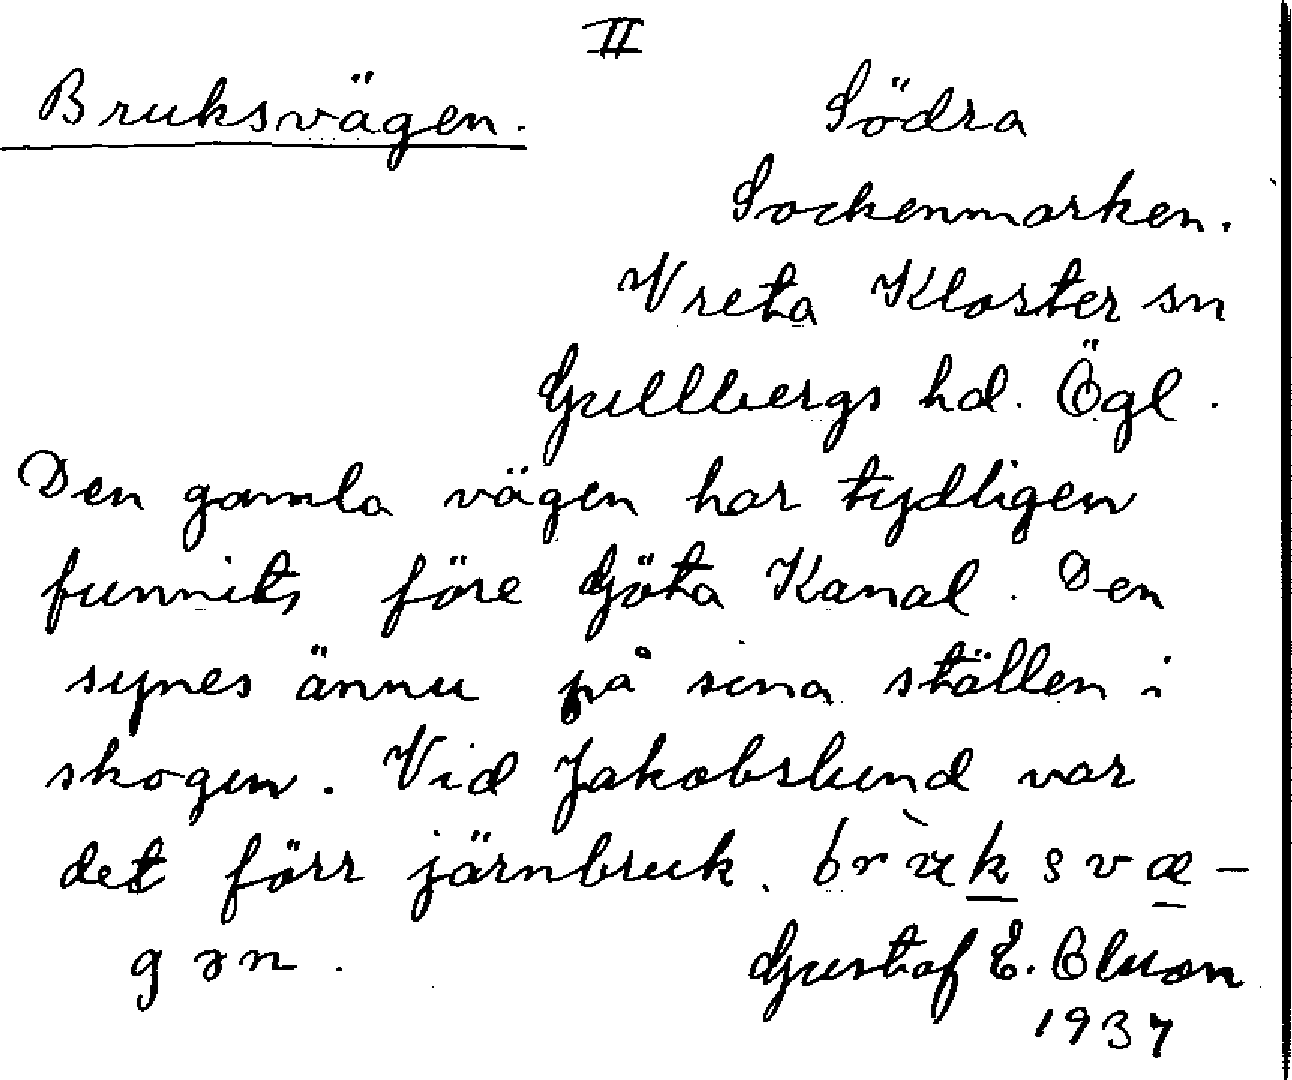 II
Bruksvägen. Södra
Sockenmarken.
Vreta Kloster sn
Gullbergs hd. Ögl.
Den gamla vägen har tydligen
funnits före Göta Kanal. Den
synes ännu på sina ställen i
skogen. Vid Jakobslund var
det förr järnbruk. brὰksvæ-
gən. Gustaf E.
1937